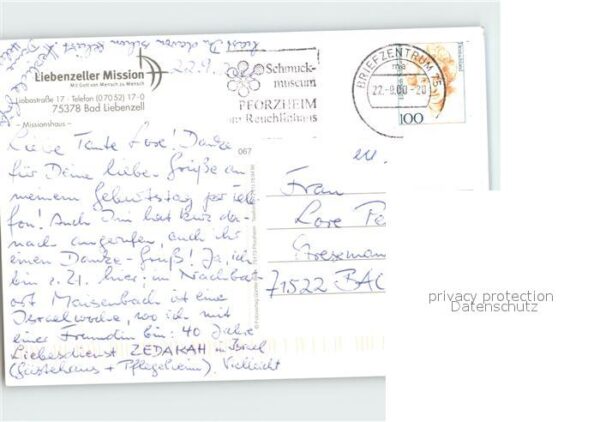 Liebenzeller Mission
Mit Gott von Mensch zu Mensch
Liobastraße 17 · Telefon (07052) 17-0
75378 Bad Liebenzell
– Missionshaus –
22.9.
Schmuck-
museum
PFORZHEIM
im Reuchlinhaus
BRIEFZENTRUM 75
22.-9.00-20
Deutschland
100
067
Liebe Tante Lore! Danke
für Deine lieben Grüße an
meinem Geburtstag per Tele-
fon! Auch Ihn hast kurz da-
nach angerufen, auch ihr
einen Danke-Gruß! Ja, ich
bin s. 21. hier; im Nachbar-
ort Maisenbach ist eine
Israelwoche, wo ich mit
einer Freundin bin: 40 Jahre
Liebesdienst ZEDAKAH in Israel
(Gästehaus + Pflegeheim). Vielleicht
Frau
Lore
Stresemann
71522 BAC
privacy protection
Datenschutz